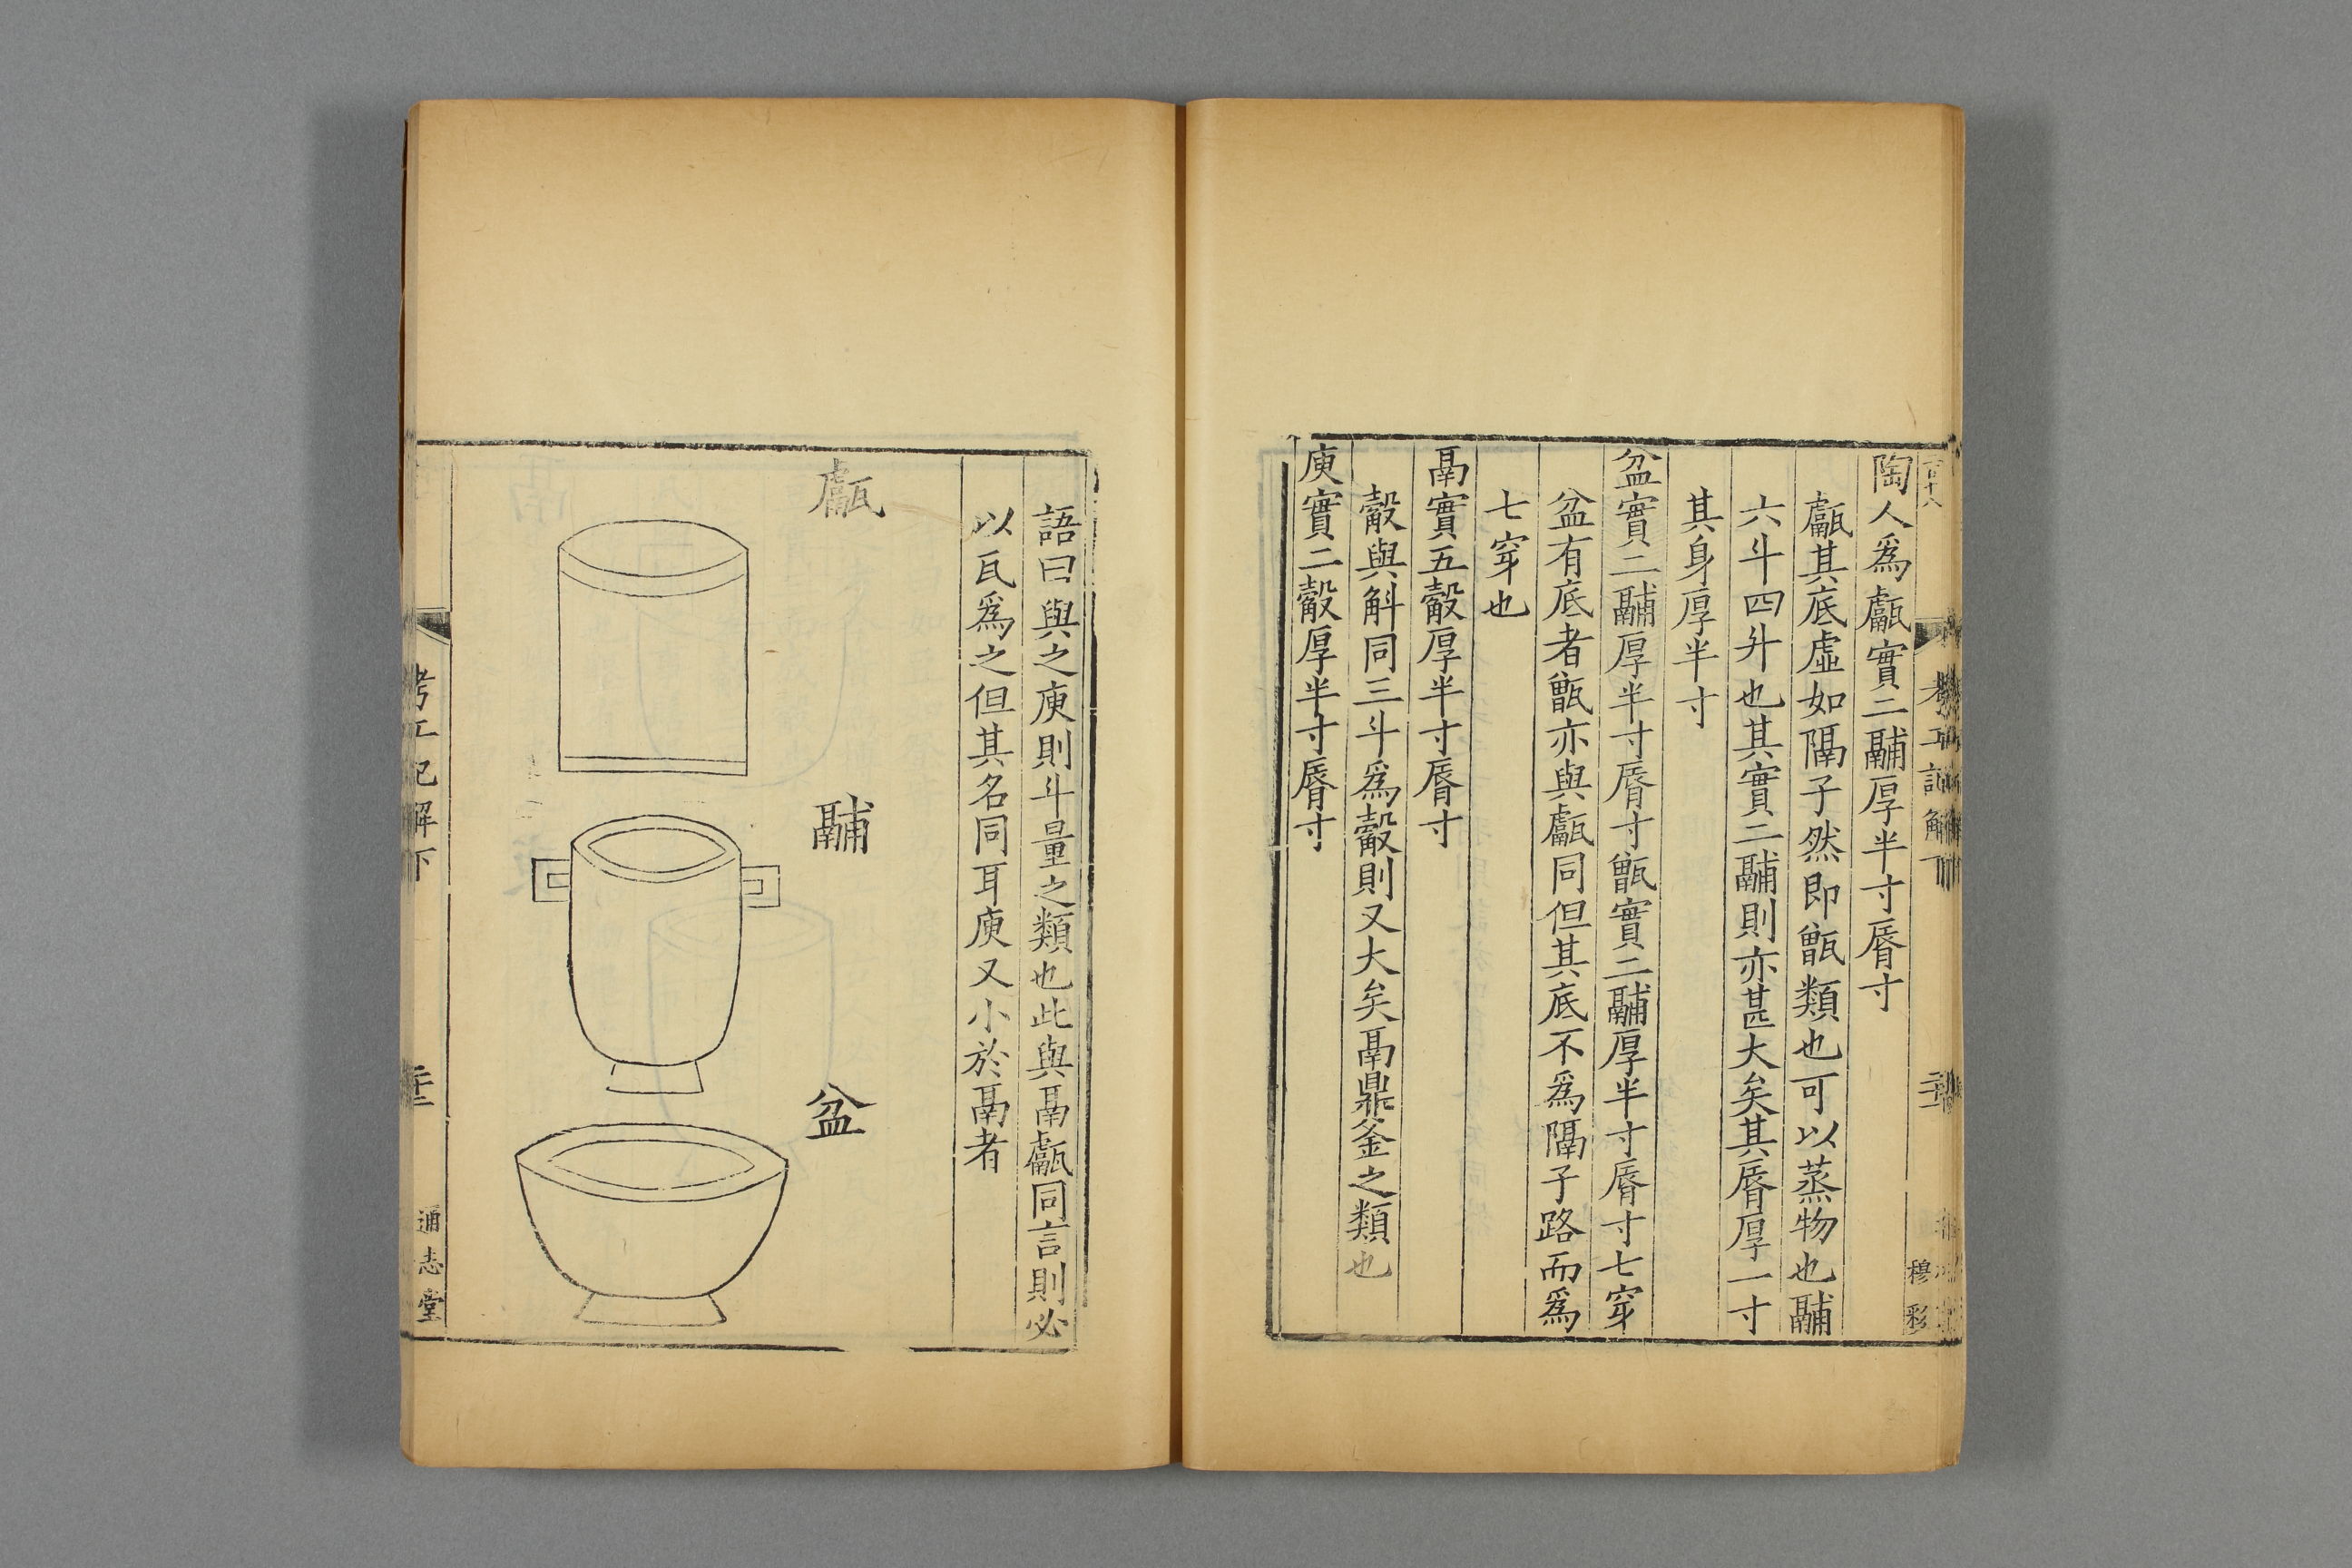 陶人爲甗實二鬴厚半寸脣寸
甗其底虛如隔子然即甑類也可以蒸物也鬴
六斗四升也其實二鬴則亦甚大矣其脣厚一寸
其身厚半寸
盆實二鬴厚半寸脣寸甑實二鬴厚半寸脣寸七穿
盆有底者甑亦與甗同但其底不爲隔子路而爲
七穿也
鬲實五觳厚半寸脣寸
觳與斛同三斗爲觳則又大矣鬲鼎釜之類也
庾實二觳厚半寸脣寸
語曰與之庾則斗量之類也此與鬲甗同言則必
以瓦爲之但其名同耳庾又小於鬲者
甗
鬴
盆
考工記解下
通志堂
穆彩